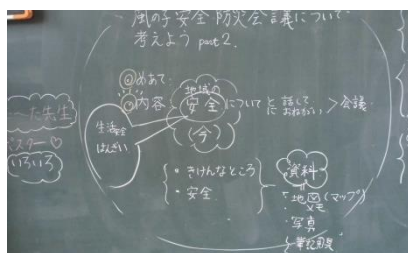 風の子安全防災会議について
考えよう part2.
めあて
内容
地域の
安全
(今)
について
話して
会議
生活安全
はんざい
た先生
スター♡
いろいろ
・きけんなところ
・安全
資料
・地図(マップ)
メモ
・写真
・筆記用具